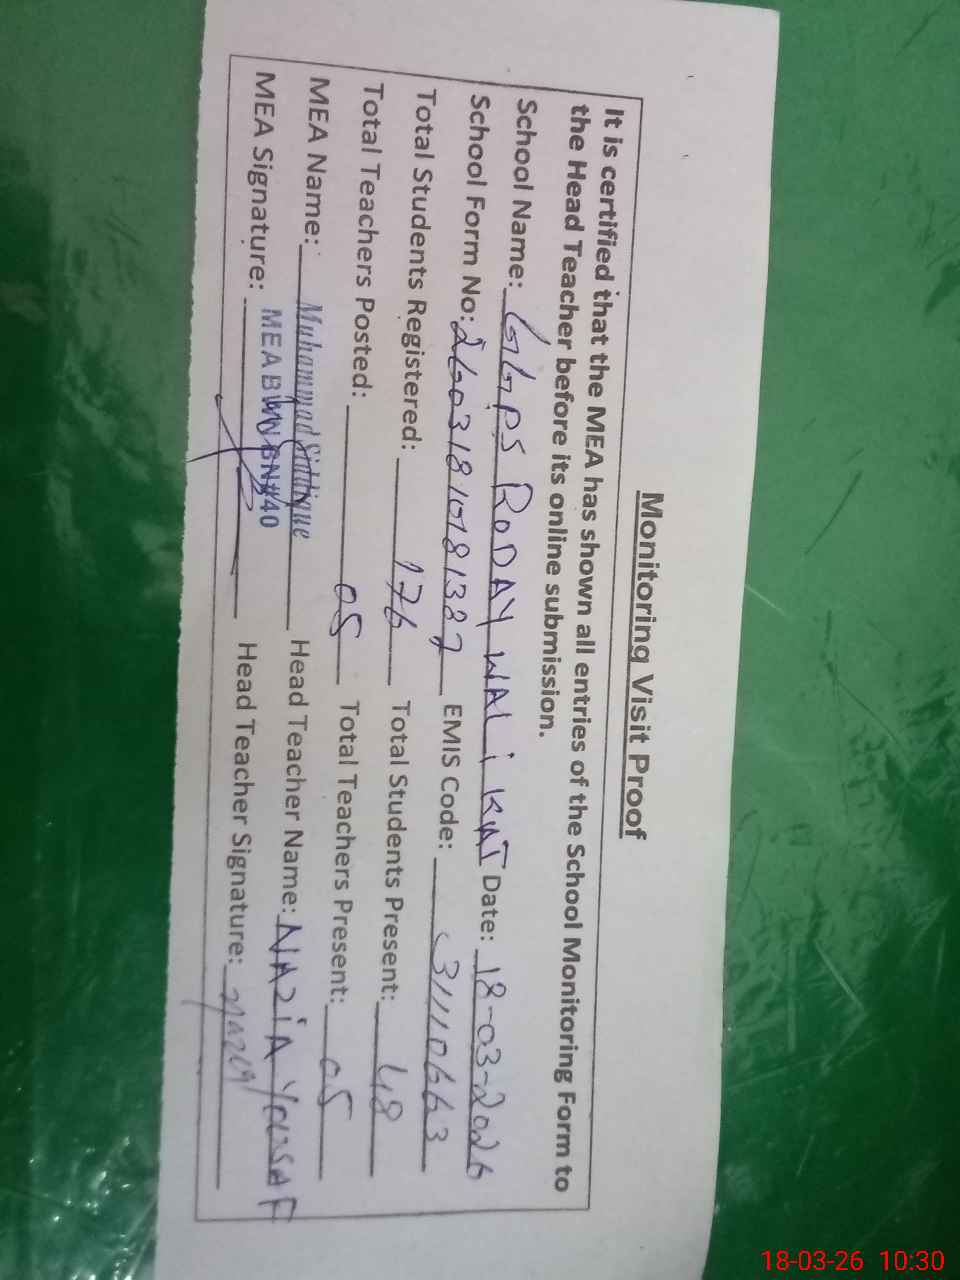 Monitoring Visit Proof
It is certified that the MEA has shown all entries of the School Monitoring Form to
the Head Teacher before its online submission.
School Name: GGPS RODAY WALi KAT Date: 18-03-2026
School Form No: EMIS Code: 31110663
Total Students Registered: 176 Total Students Present:
Total Teachers Posted: 05 Total Teachers Present: 05
MEA Name: Muhammad Siddique Head Teacher Name: NAZiA YOUSAF
MEA Signature: MEA BWN BN#40 Head Teacher Signature:
18-03-26 10:30